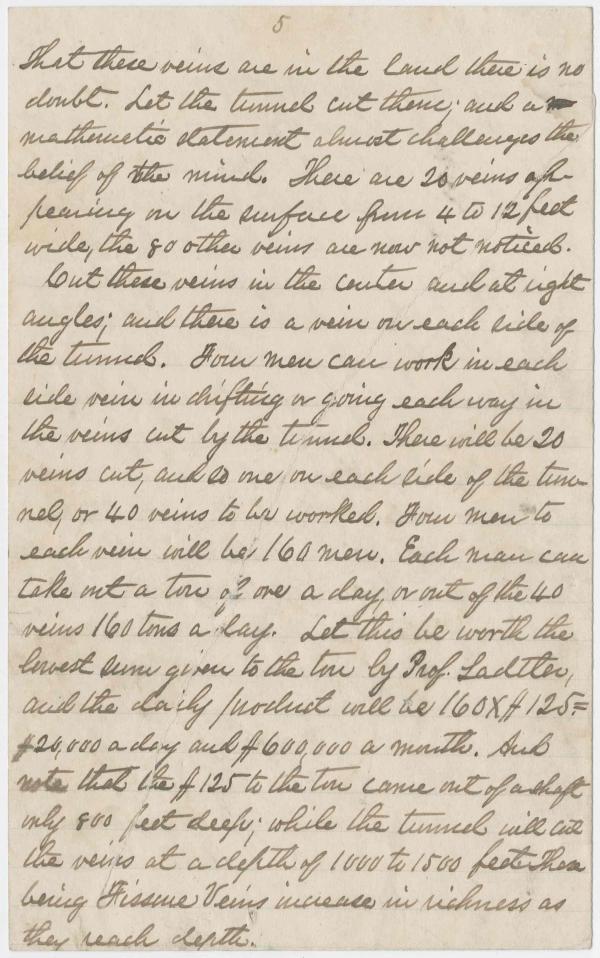 5
That these veins are in the land there is no
doubt. Let the tunnel cut them; and a
mathematic statement almost challenges the
belief of the mind. There are 20 veins ap-
pearing on the surface from 4 to 12 feet
wide, the 80 other veins are now not noticed.
Cut these veins in the center and at right
angles; and there is a vein on each side of
the tunnel. Four men can work in each
side vein in drifting or going each way in
the veins cut by the tunnel. There will be 20
veins cut, and one on each side of the tun-
nel, or 40 veins to be worked. Four men to
each vein will be 160 men. Each man can
take out a ton of ore a day, or out of the 40
veins 160 tons a day. Let this be worth the
lowest sum given to the ton by Prof.
and the daily product will be 160X$125=
$20,000 a day and $600,000 a month. And
note that the $125 to the ton came out of a shaft
only 800 feet deep; while the tunnel will cut
the veins at a depth of 1000 to 1500 feet. These
being Fissure Veins increase in richness as
they reach depth.